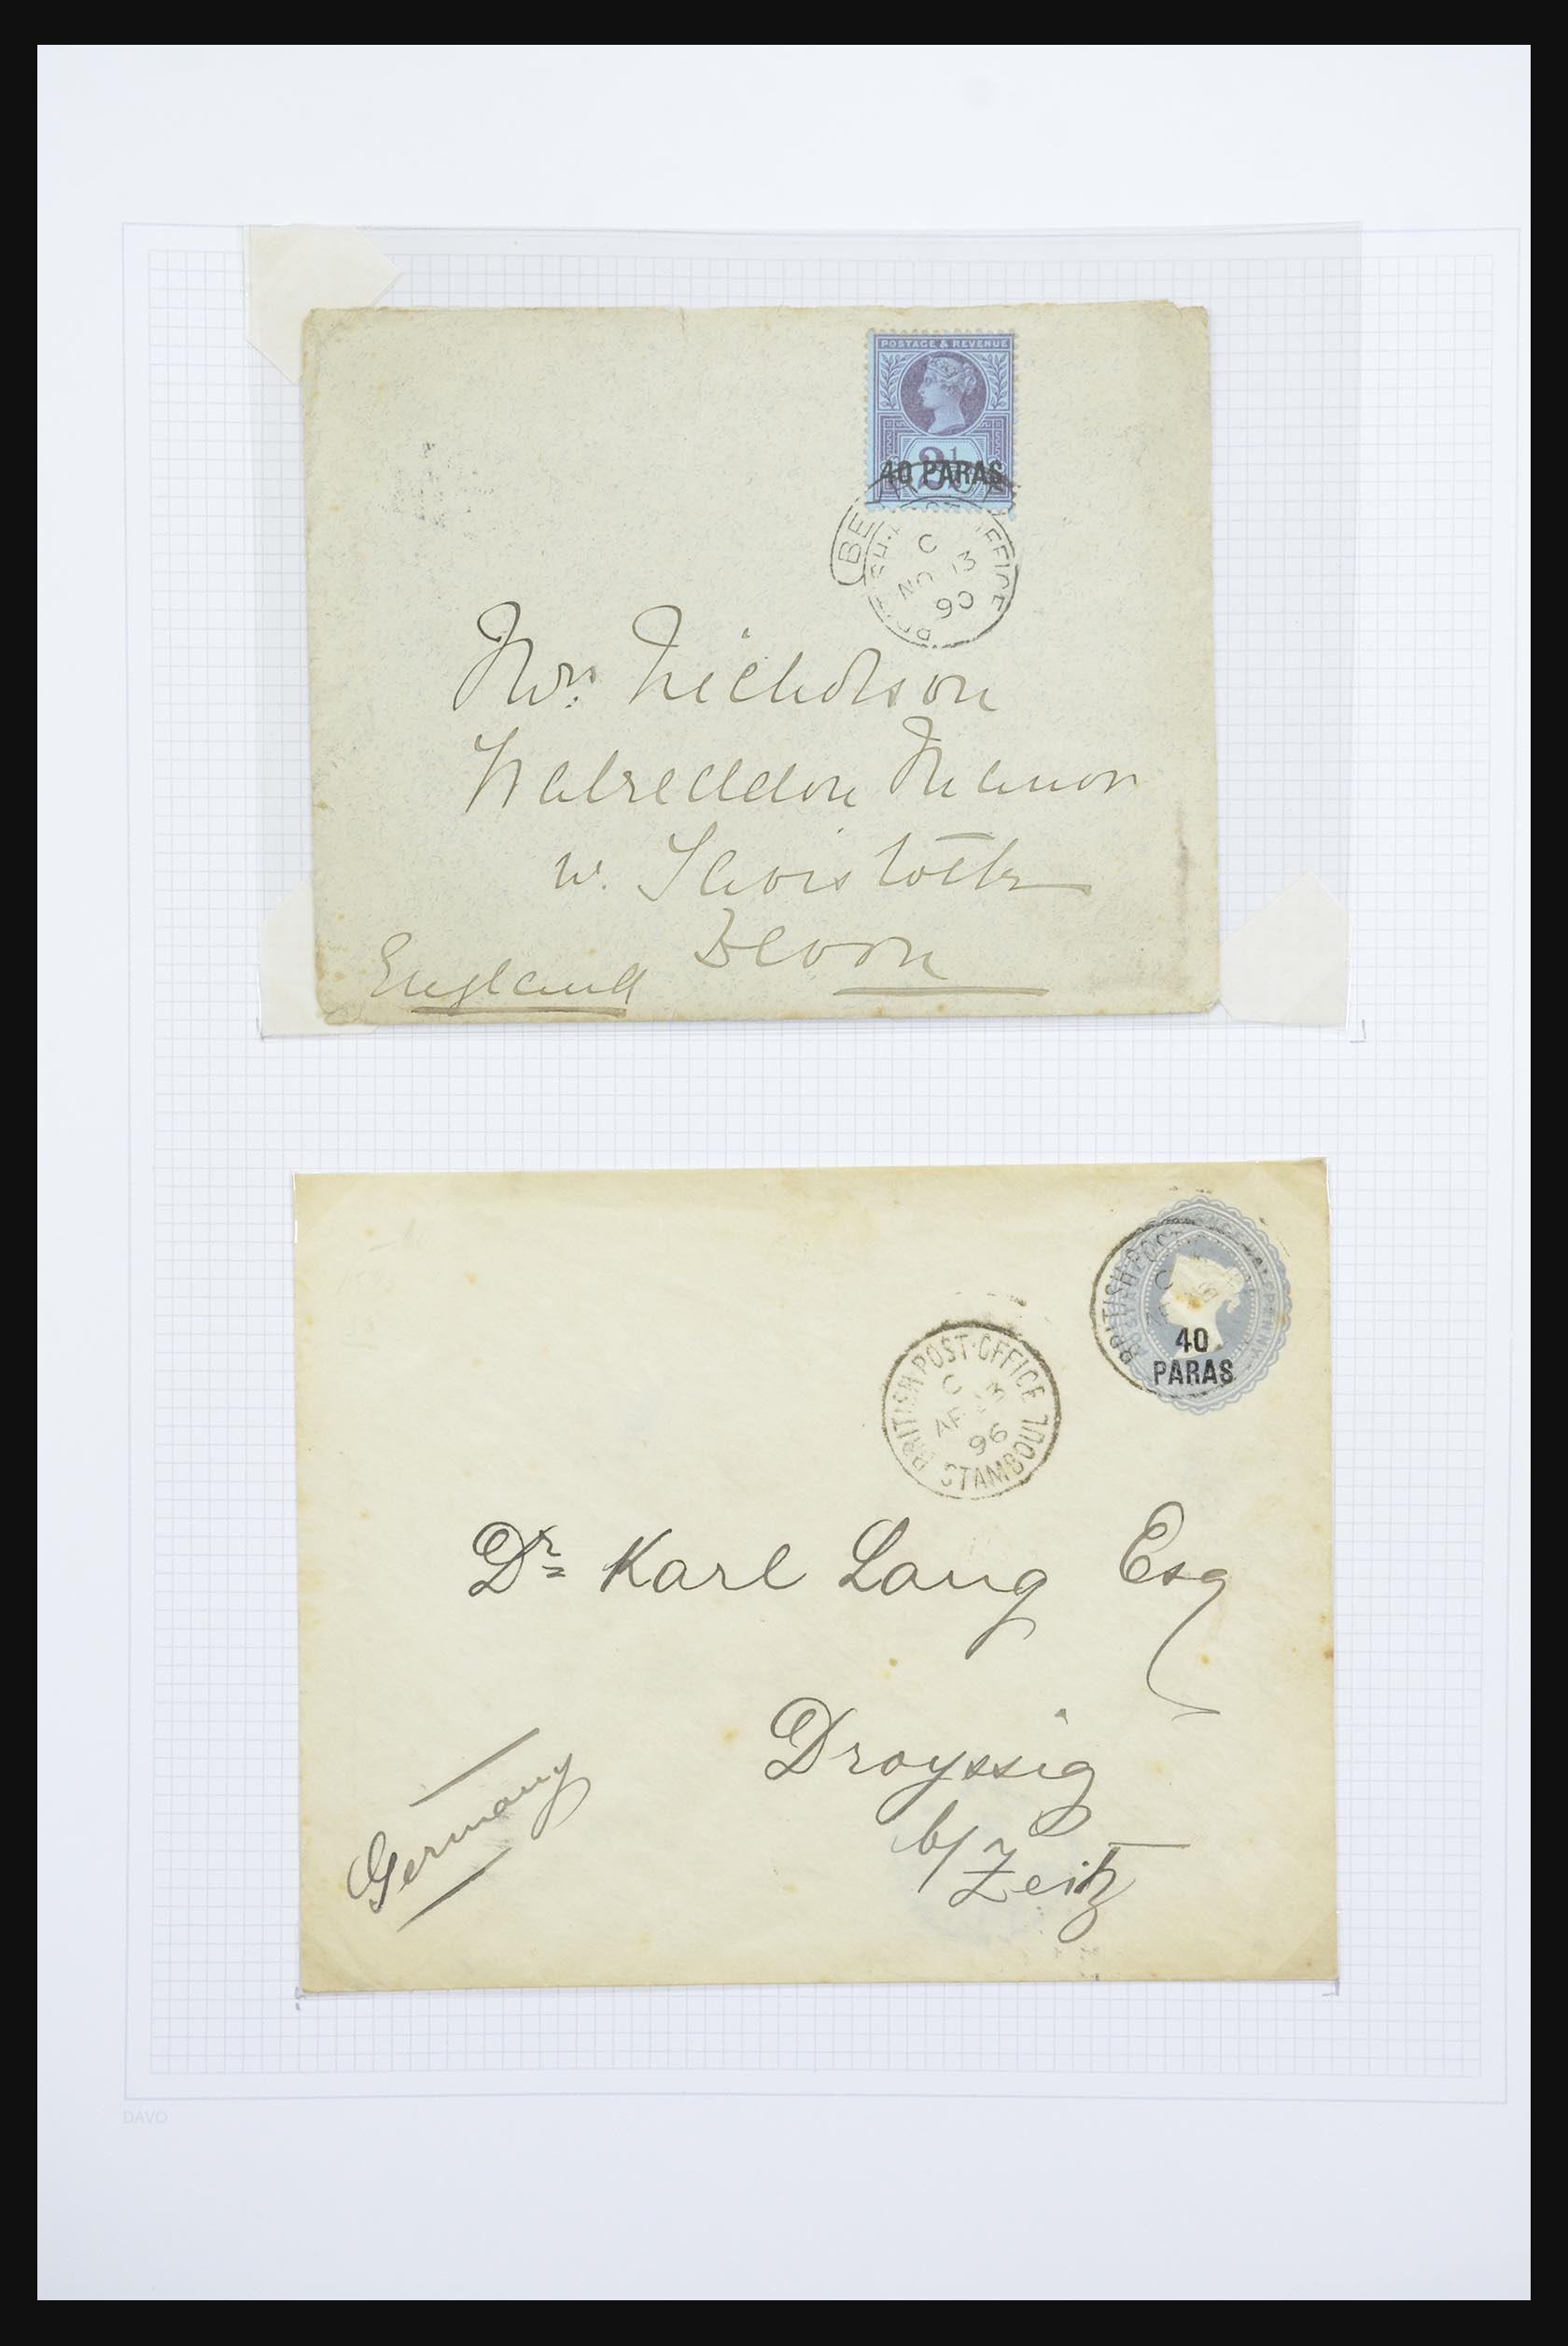 POSTAGE & REVENUE
2½
40 PARAS
BE
OFFICE
C
NO 13
90
Mrs. Nicholson
Walreddon Manor
Tavistock
Devon
England
40
PARAS
BRITISH POST
C
BRITISH POST OFFICE
C
AP 13
96
STAMBOUL
Dr Karl Lang Esq
Droyssig
b/ Zeitz
Germany
DAVO